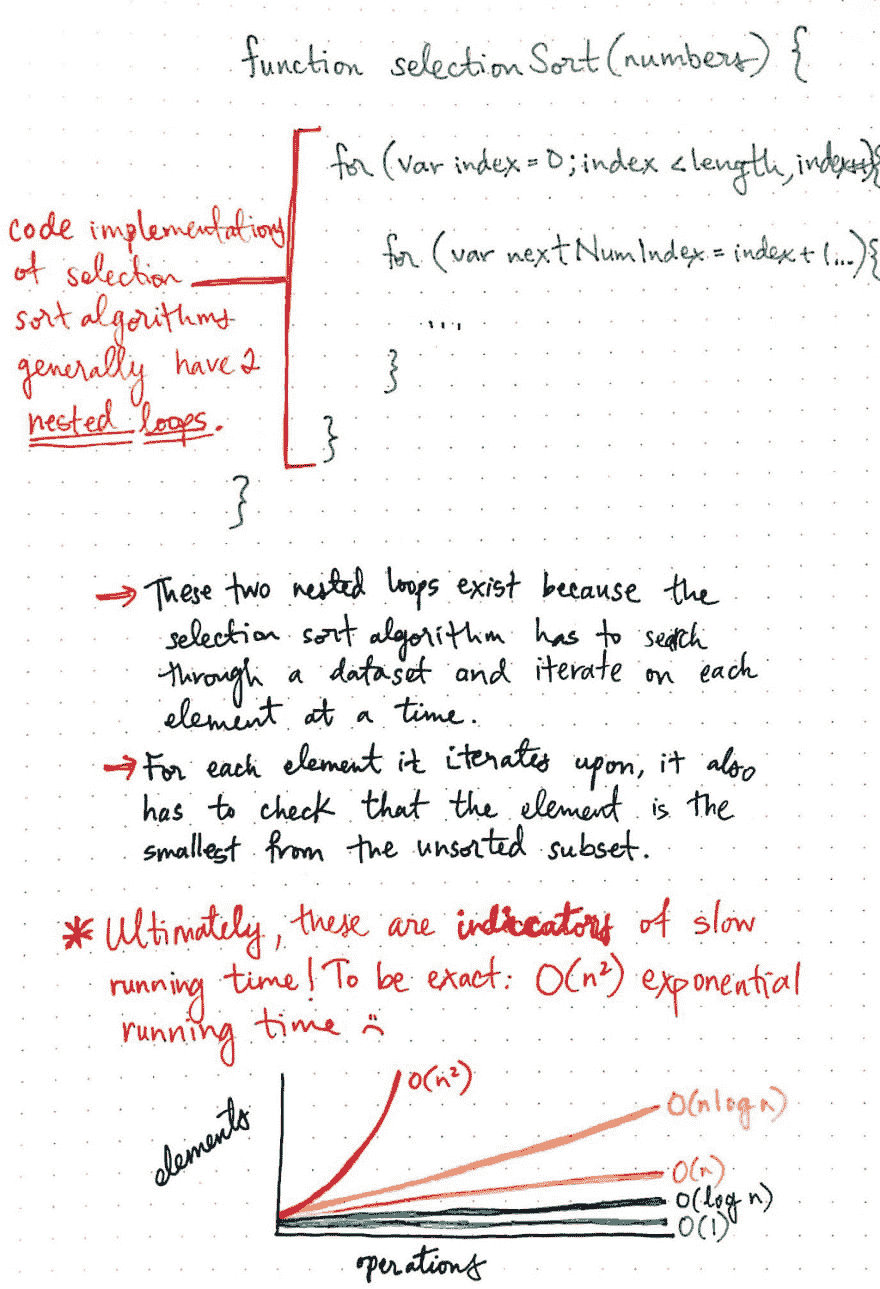 function selectionSort(numbers) {
for (var index = 0; index < length, index++){
for (var nextNumIndex = index + 1...){
....
}
}
}
code implementations
of selection
sort algorithms
generally have 2
nested loops.
→ These two nested loops exist because the
selection sort algorithm has to search
through a dataset and iterate on each
element at a time.
→ For each element it iterates upon, it also
has to check that the element is the
smallest from the unsorted subset.
* Ultimately, these are indiccators of slow
running time! To be exact: O(n²) exponential
running time :(
O(n²)
O(n log n)
O(n)
O(log n)
O(1)
elements
operations